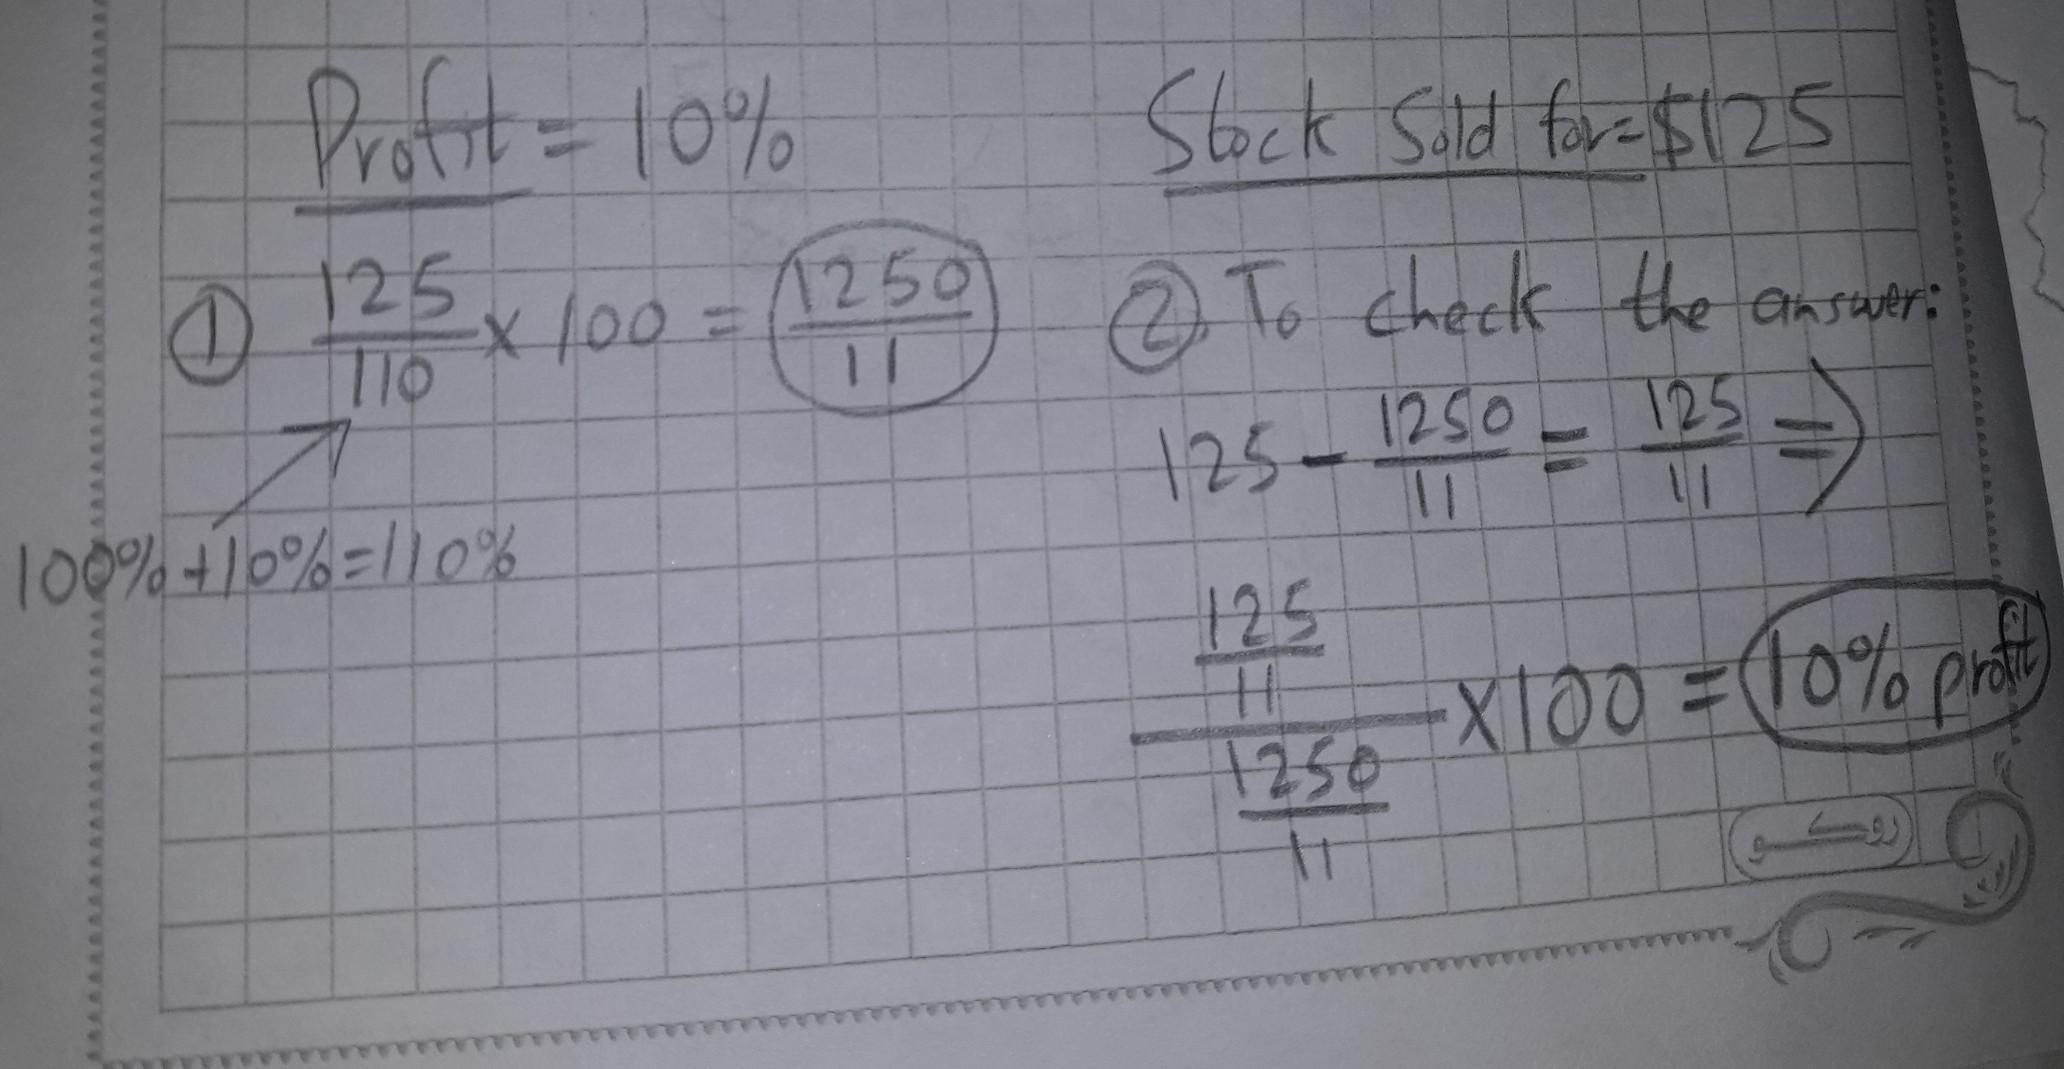 Profit = 10%
Stock Sold for = $125
① 125/110 × 100 = 1250/11
100% + 10% = 110%
②. To check the answer:
125 - 1250/11 = 125/11 ⇒
125/11 / 1250/11 × 100 = 10% profit